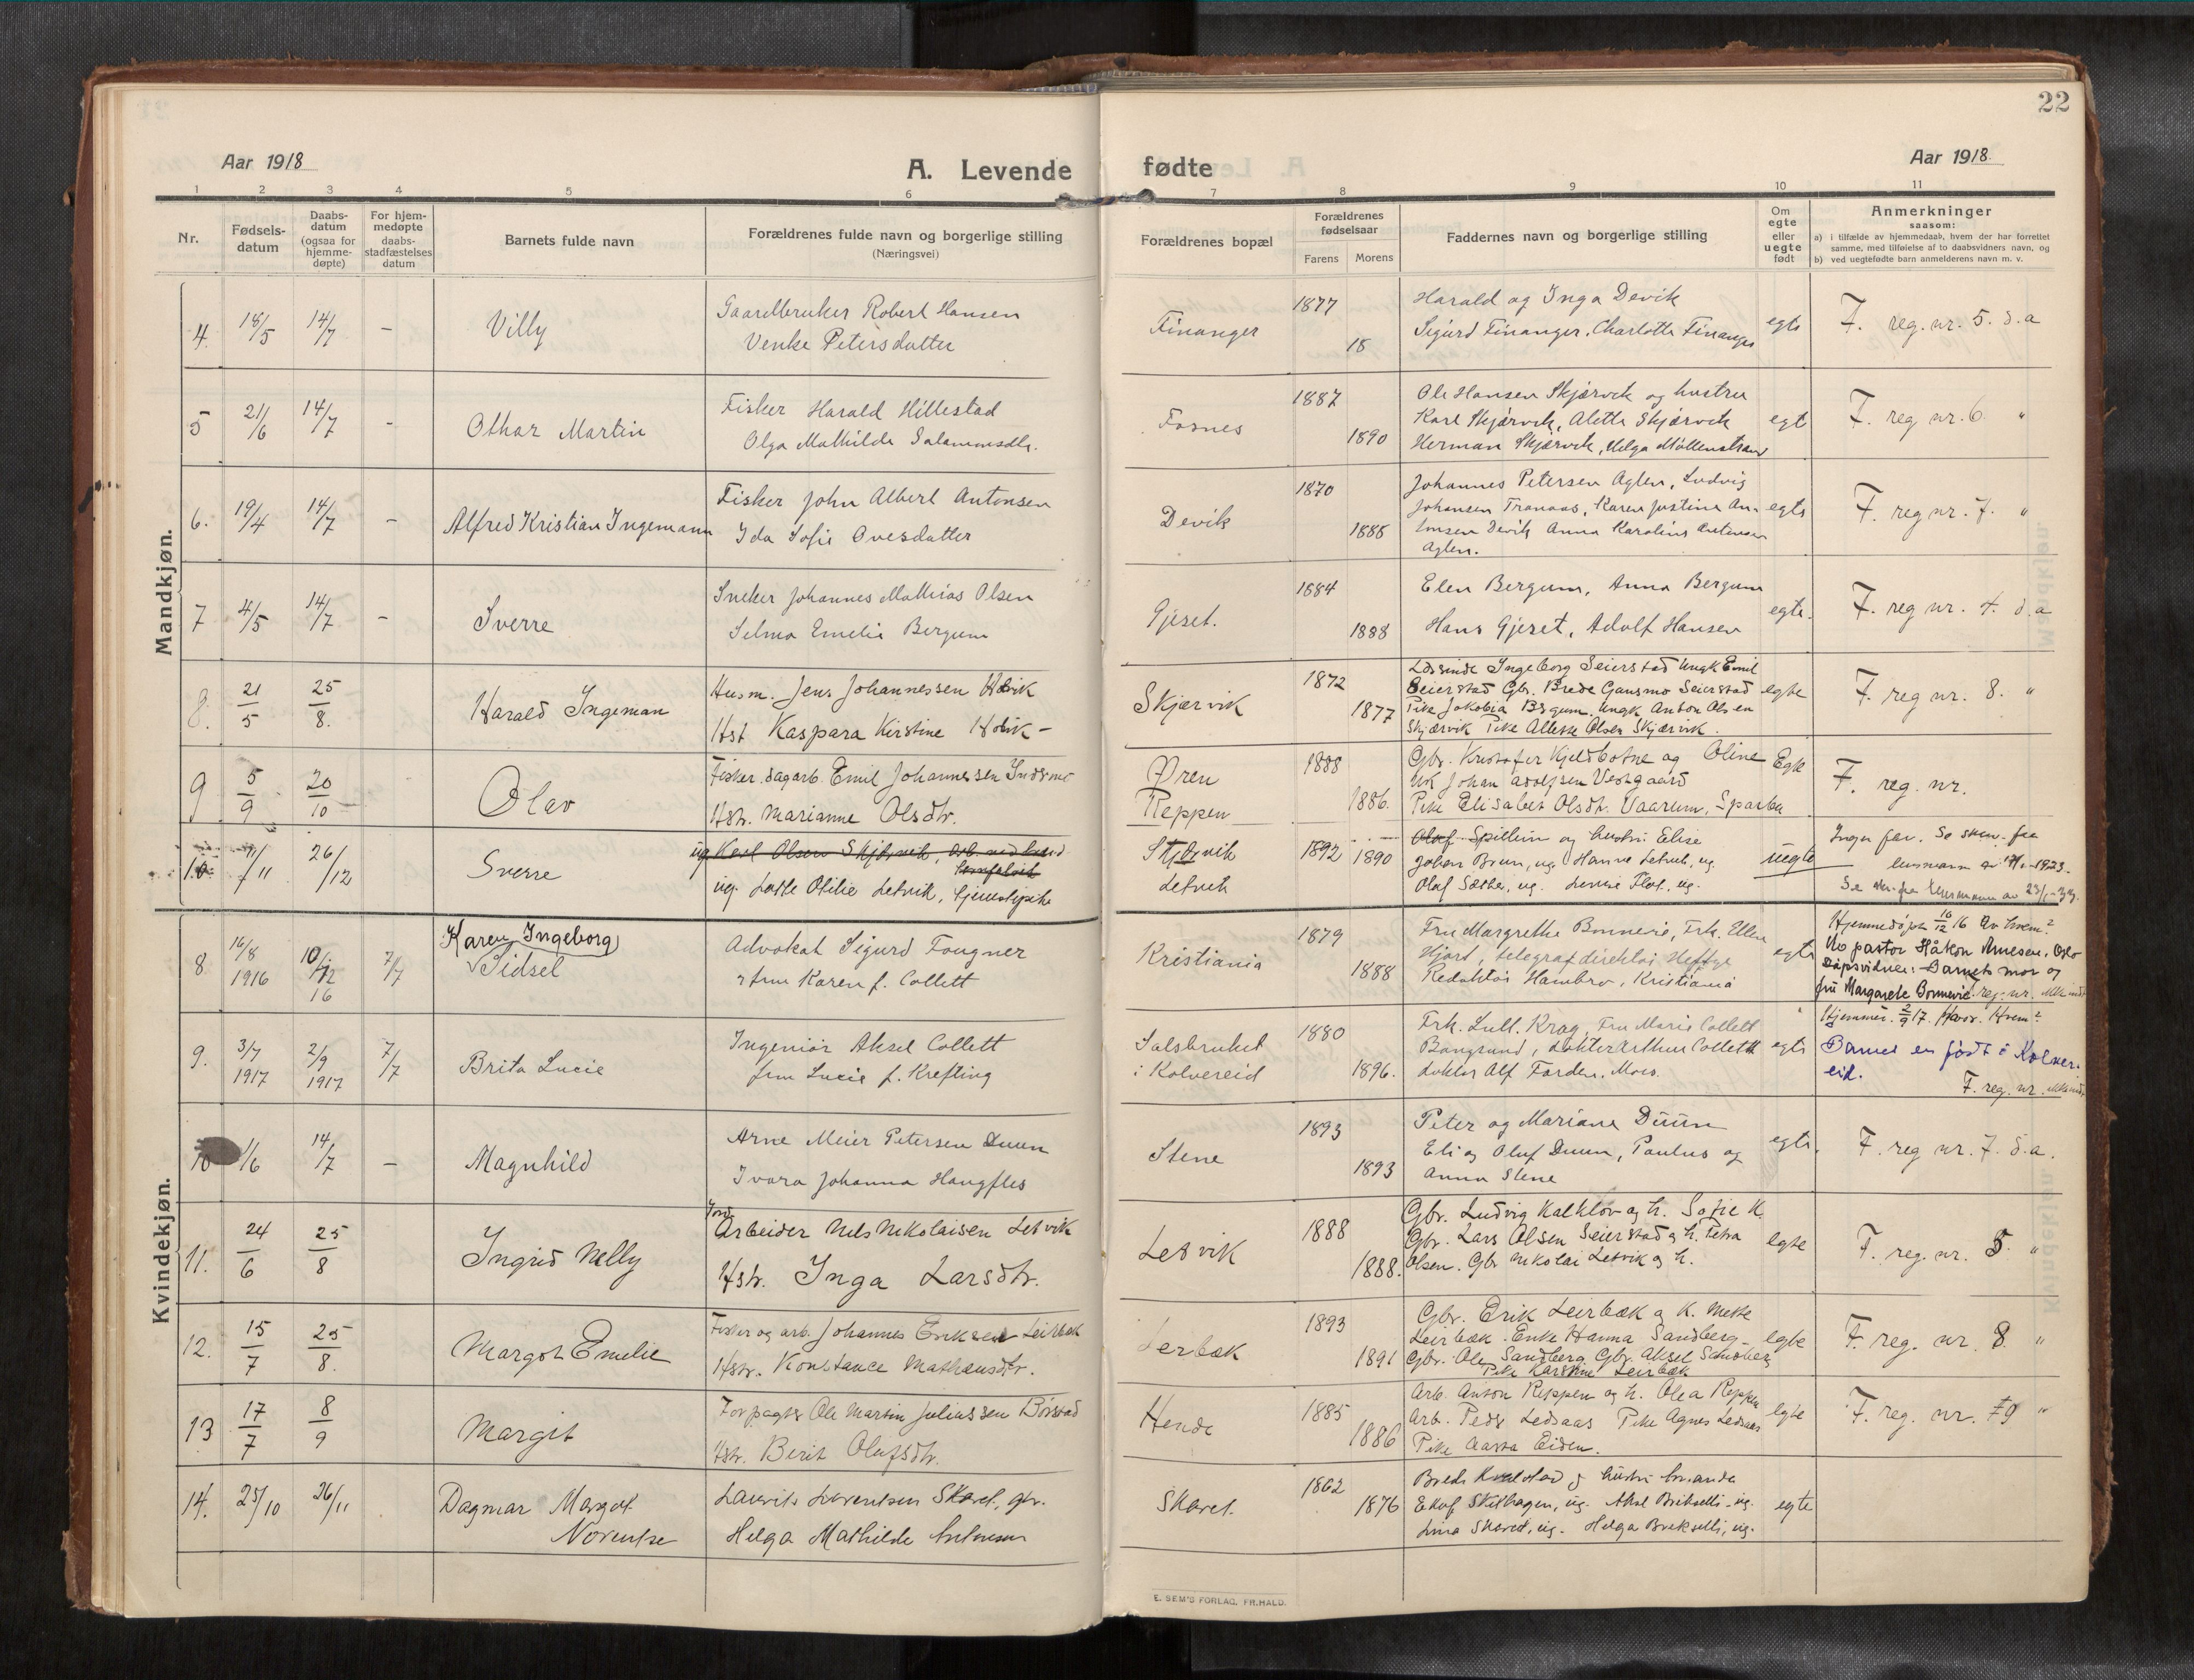 22
Aar 1918
A. Levende fødte
Aar 1918.
1 2 3 4 5 6 7 8 9 10 11
Nr.
Fødsels-
datum
Daabs-
datum
(ogsaa for
hjemme-
døpte)
For hjem-
medøpte
daabs-
stadfæstelses
datum
Barnets fulde navn
Forældrenes fulde navn og borgerlige stilling
(Næringsvei)
Forældrenes bopæl
Forældrenes
fødselsaar
Farens Morens
Faddernes navn og borgerlige stilling
Om
egte
eller
uegte
født
Anmerkninger
saasom:
a) i tilfælde av hjemmedaab, hvem der har forrettet
samme, med tilføielse af to daabsvidners navn, og
b) ved uegtefødte barn anmelderens navn m. v.
Mandkjøn.
4. 18/5 14/7 - Villy
Gaardbruker Robert Hansen
Venke Petersdatter
Finanger 1877 18
Harald og Inga Devik
Sigurd Finanger, Charlotte Finanger
egte F. reg. nr. 5. d.a
5 21/6 14/7 - Othar Martin
Fisker Harald Hillestad
Olga Mathilde Salamonsdtr.
Fosnes 1887 1890
Ole Hansen Skjærvik og hustru
Karl Skjærvik, Alette Skjærvik
Herman Skjærvik, Helga Møllenstrand
egte F. reg nr. 6. "
6. 19/4 14/7 - Alfred Kristian Ingemann
Fisker John Albert Antonsen
Ida Sofie Ovesdatter
Devik 1870 1885
Johannes Petersen Aglen, Ludvig
Johansen Tranaas, Karen Justine An-
tonsen Devik Anna Karoline Antonsen
Aglen.
egte F. reg nr. 7. "
7 4/5 14/7 - Sverre
Sneker Johannes Mathias Olsen
Selma Emelie Bergum
Gjeset. 1884 1888
Elen Bergum, Anna Bergum
Hans Gjeset, Adolf Hansen
egte. F. reg nr. 4. d.a
8. 21/5 25/8. Harald Ingeman
Husm. Jens Johannessen
Hst Kaspara Kirstine
Skjærvik 1872 1877
Ingeborg Seierstad Ungk Emil
Seierstad Gbr. Brede Gansmo Seierstad
Pike Jakobia Bergum. Ungk Anton Olsen
Skjærvik Pike Olsen Skjærvik.
egte F. reg nr. 8. "
9 5/9 20/10 Olav
Fisker, dagarb. Emil Johannessen
Hstr. Marianne Olsdtr.
Øren
Reppen
1888 1886.
Gbr. Kristofer Kjeldbotne og Oline
Uk Johan Adolfsen Vestgaard
Pike Elisabet Olsdtr. Vaarum, Sparbu
Egte F. reg. nr.
10 7/11 26/12 Sverre
ug Karl Olsen Skjærvik, arb. ved
ug. Lotte Otilie Letvik, tjenestepike
Skjærvik
Letvik
1892 1890
Olaf Spillum og hustru Elise
Johan Brun, ug. Hanne Letvik, ug.
Olaf Sæther, ug. Flot, ug.
uegte
Ingen far. Se skriv. fra
lensmann av 1923.
Se skr. fra lensmann av 23/1-33.
Kvindekjøn.
8. 16/8 1916 10/12 16 7/7
Karen Ingeborg
Sidsel
Advokat Sigurd Fougner
Fru Karen f. Collett
Kristiania 1879 1888
Fru Margrethe Bonnevie, Frk. Ellen
Hjort, telegrafdirektør Heftye
Redaktør Hambro, Kristiania
egte
Hjemmedøpt 10/12 16 Av hvem?
Av pastor Håkon Arnesen, Oslo
Dåpsvidner: Barnets mor og
fru Margarete Bonnevie. F. reg. nr.
9. 3/7 1917 2/9 1917 7/7 Brita Lucie
Ingeniør Aksel Collett
fru Lucie f. Krefting
Salsbruket
i Kolvereid
1880 1896.
Frk. Lull. Krag, Fru Marie Collett
Bangsund, doktor Arthur Collett
doktor Alf Forden, Moss.
egte
Hjemmed. 2/9 17. Hvor. Hvem?
Barnet er født i Kolver-
eid.
F. reg. nr.
10 1/6 14/7 - Magnhild
Arne Meier Petersen Duun
Ivara Johanna Haugfles
Stene 1893 1893
Peter og Mariane Duun
Eli og Oluf Duun, Paulus og
Anna Stene
egte. F. reg nr. 7. d.a.
11. 24/6 25/8 Ingrid Nelly
Jord
Arbeider Nils Nikolaisen Letvik
Hstr. Inga Larsdtr.
Letvik 1888 1888.
Gbr. Ludvig Kalklov og h. Sofie K.
Gbr. Lars Olsen Seierstad og h. Petra
Olsen. Gbr Nikolai Letvik og h.
egte F. reg. nr. 5. "
12. 15/7 25/8. Margot Emelie
Fisker og arb. Johannes Eriksen Leirbæk
Hstr. Konstance Matheusdtr.
Lerbæk 1893 1891
Gbr. Erik Leirbæk og K. Mette
Leirbæk. Enke Hanna Sandberg
Gbr. Ole Sandberg Gbr. Aksel Sandberg
Pike Karstine Leirbæk
egte F. reg. nr. 8. "
13 17/7 8/9 Margit
Forpagter Ole Martin Juliussen Børstad
Hstr. Berit Olufsdtr.
Hende 1885 1886
Arb. Anton Reppen og h. Olea Reppen
Arb. Peder Ledsaas Pike Agnes Ledsaas
Pike Aasta Eiden.
egte F. reg. nr. 9 "
14. 25/10 26/11 Dagmar Margot
Norentse
Laurits Lorentsen Skaret, gbr.
Helga Mathilde Antonsen
Skaret. 1862 1876
Brede Kvalstad og hustru Amanda
Skilhagen, ug. Aksel Brekselli, ug.
Skaret, ug. Helga Brekselli, ug.
egte
E. SEM'S FORLAG, FR.HALD.